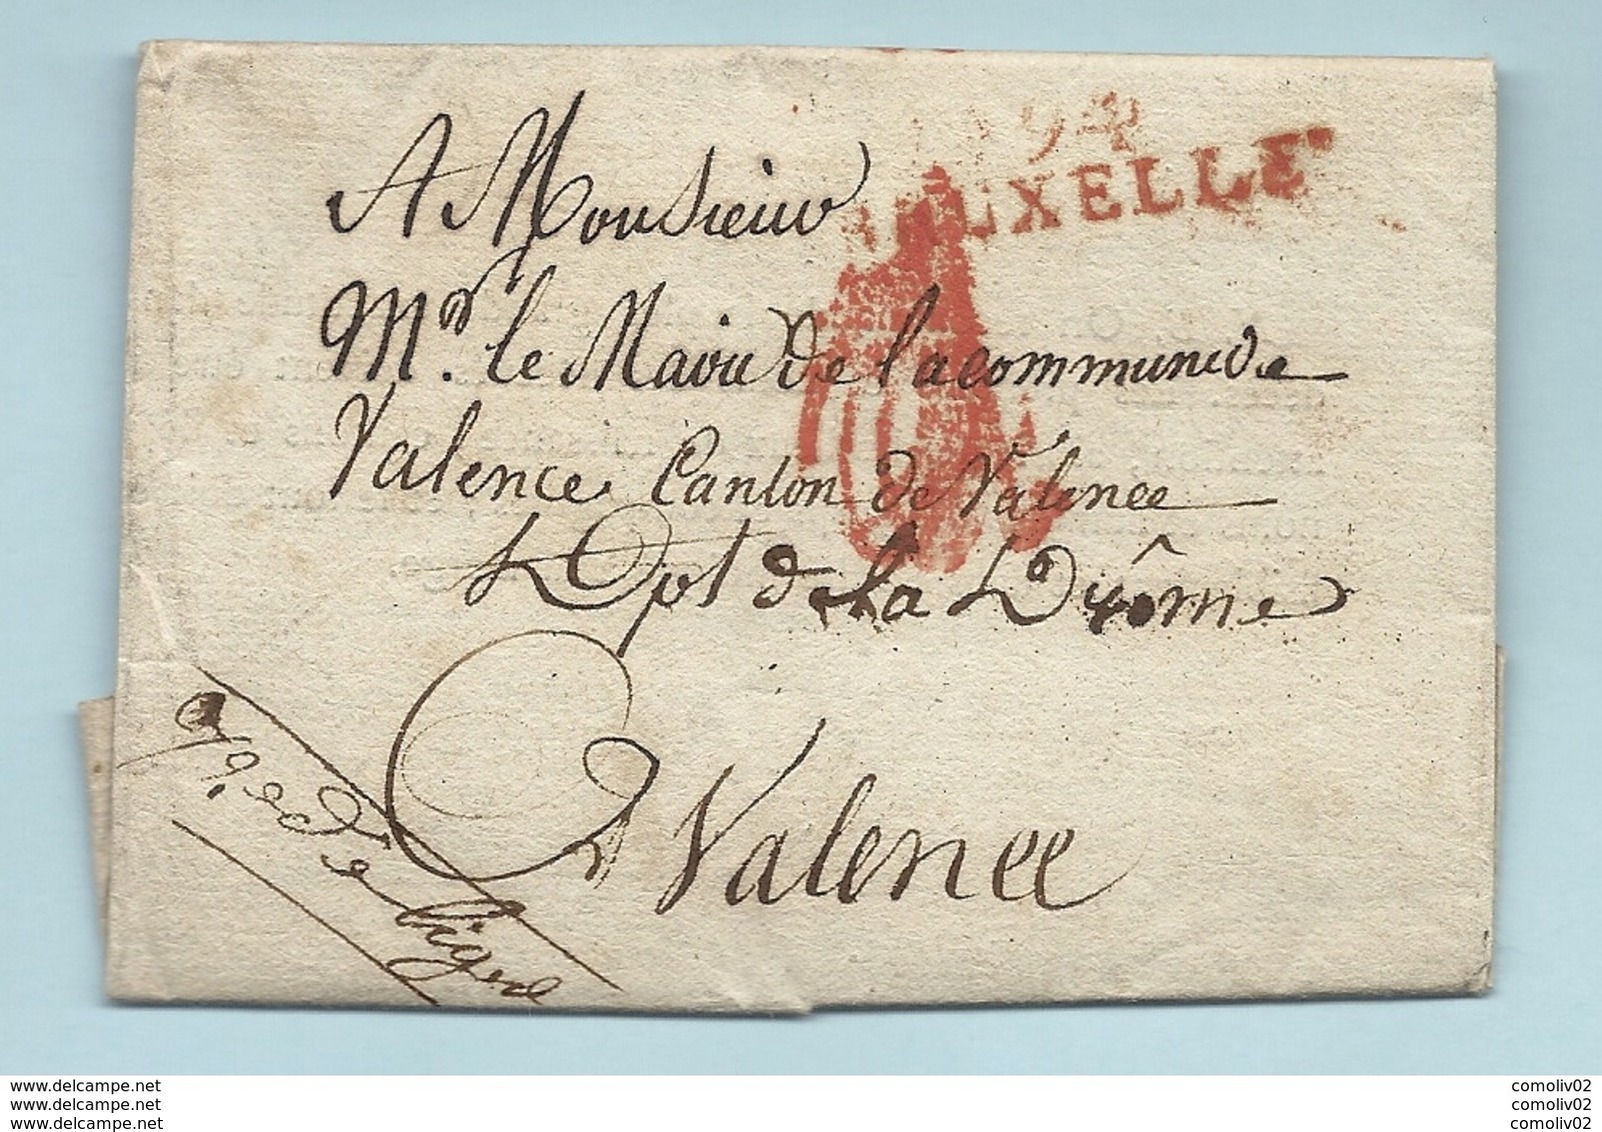 94
BRUXELLES
A Monsieur
Mr. le Maire de la commune de
Valence Canton de Valence
Dpt de la Drôme
A Valence
www.delcampe.net
www.delcampe.net
www.delcampe.net
comoliv02
comoliv02
comoliv02